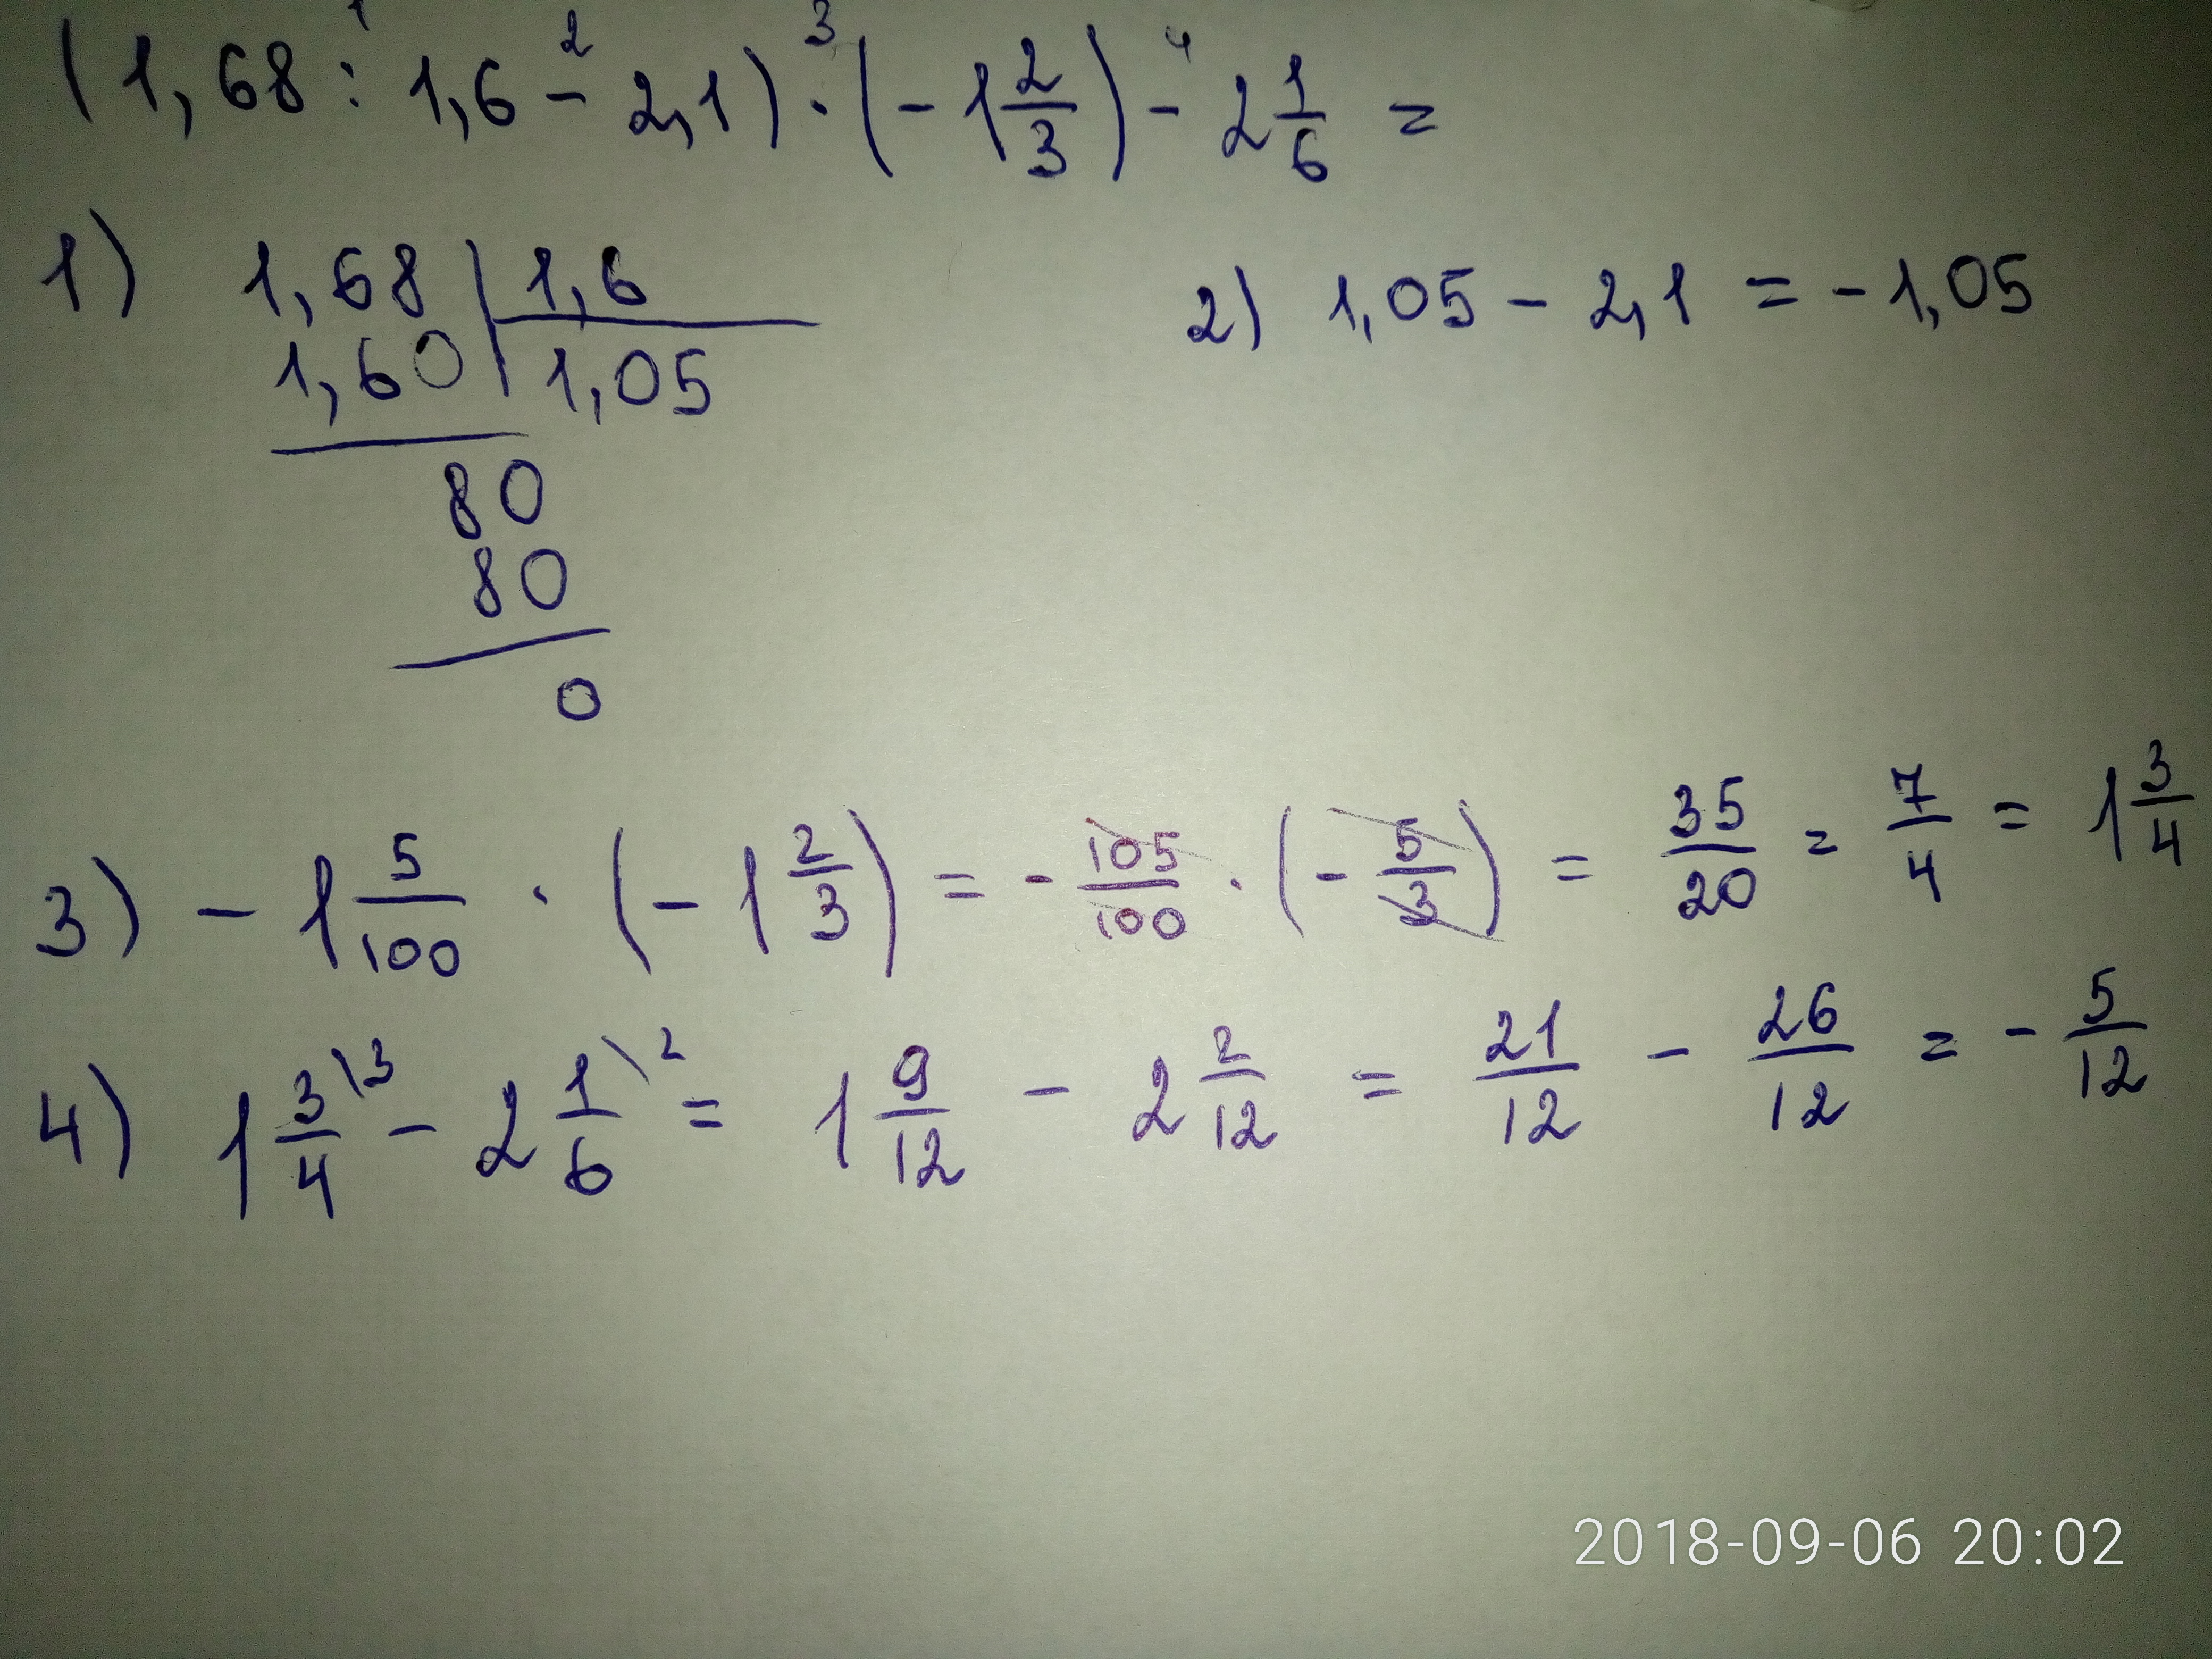 1 2 3 4
(1,68 : 1,6 - 2,1) · (- 1 2/3) - 2 1/6 =
1) 1,68 | 1,6
1,60 | 1,05
80
80
0
2) 1,05 - 2,1 = - 1,05
3) - 1 5/100 · (- 1 2/3) = - 105/100 · (- 5/3) = 35/20 = 7/4 = 1 3/4
4) 1 3/4 \3 - 2 1/6 \2 = 1 9/12 - 2 2/12 = 21/12 - 26/12 = - 5/12
2018-09-06 20:02